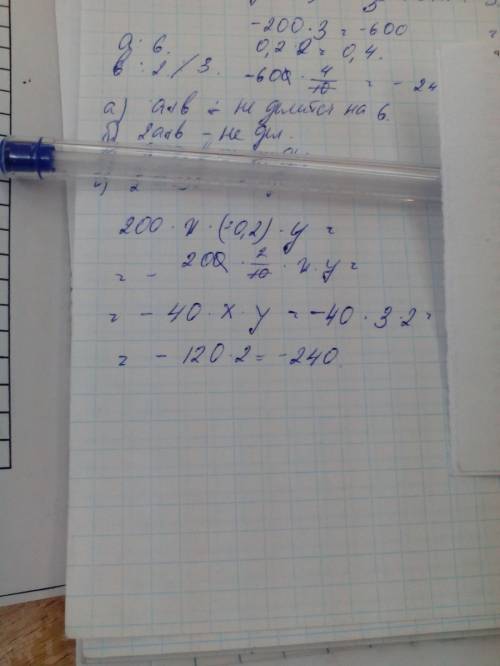 -200 · 3 = -600
a : 6. 0,2 · 2 = 0,4.
в : 2 / 3. -600 · 4/10 = - 24
а) a+b - не делится на 6.
б) 2a+b - не дел.
200 · x · (-0,2) · y =
= - 200 · 2/10 · x · y =
= - 40 · x · y = -40 · 3 · 2 =
= - 120 · 2 = -240.